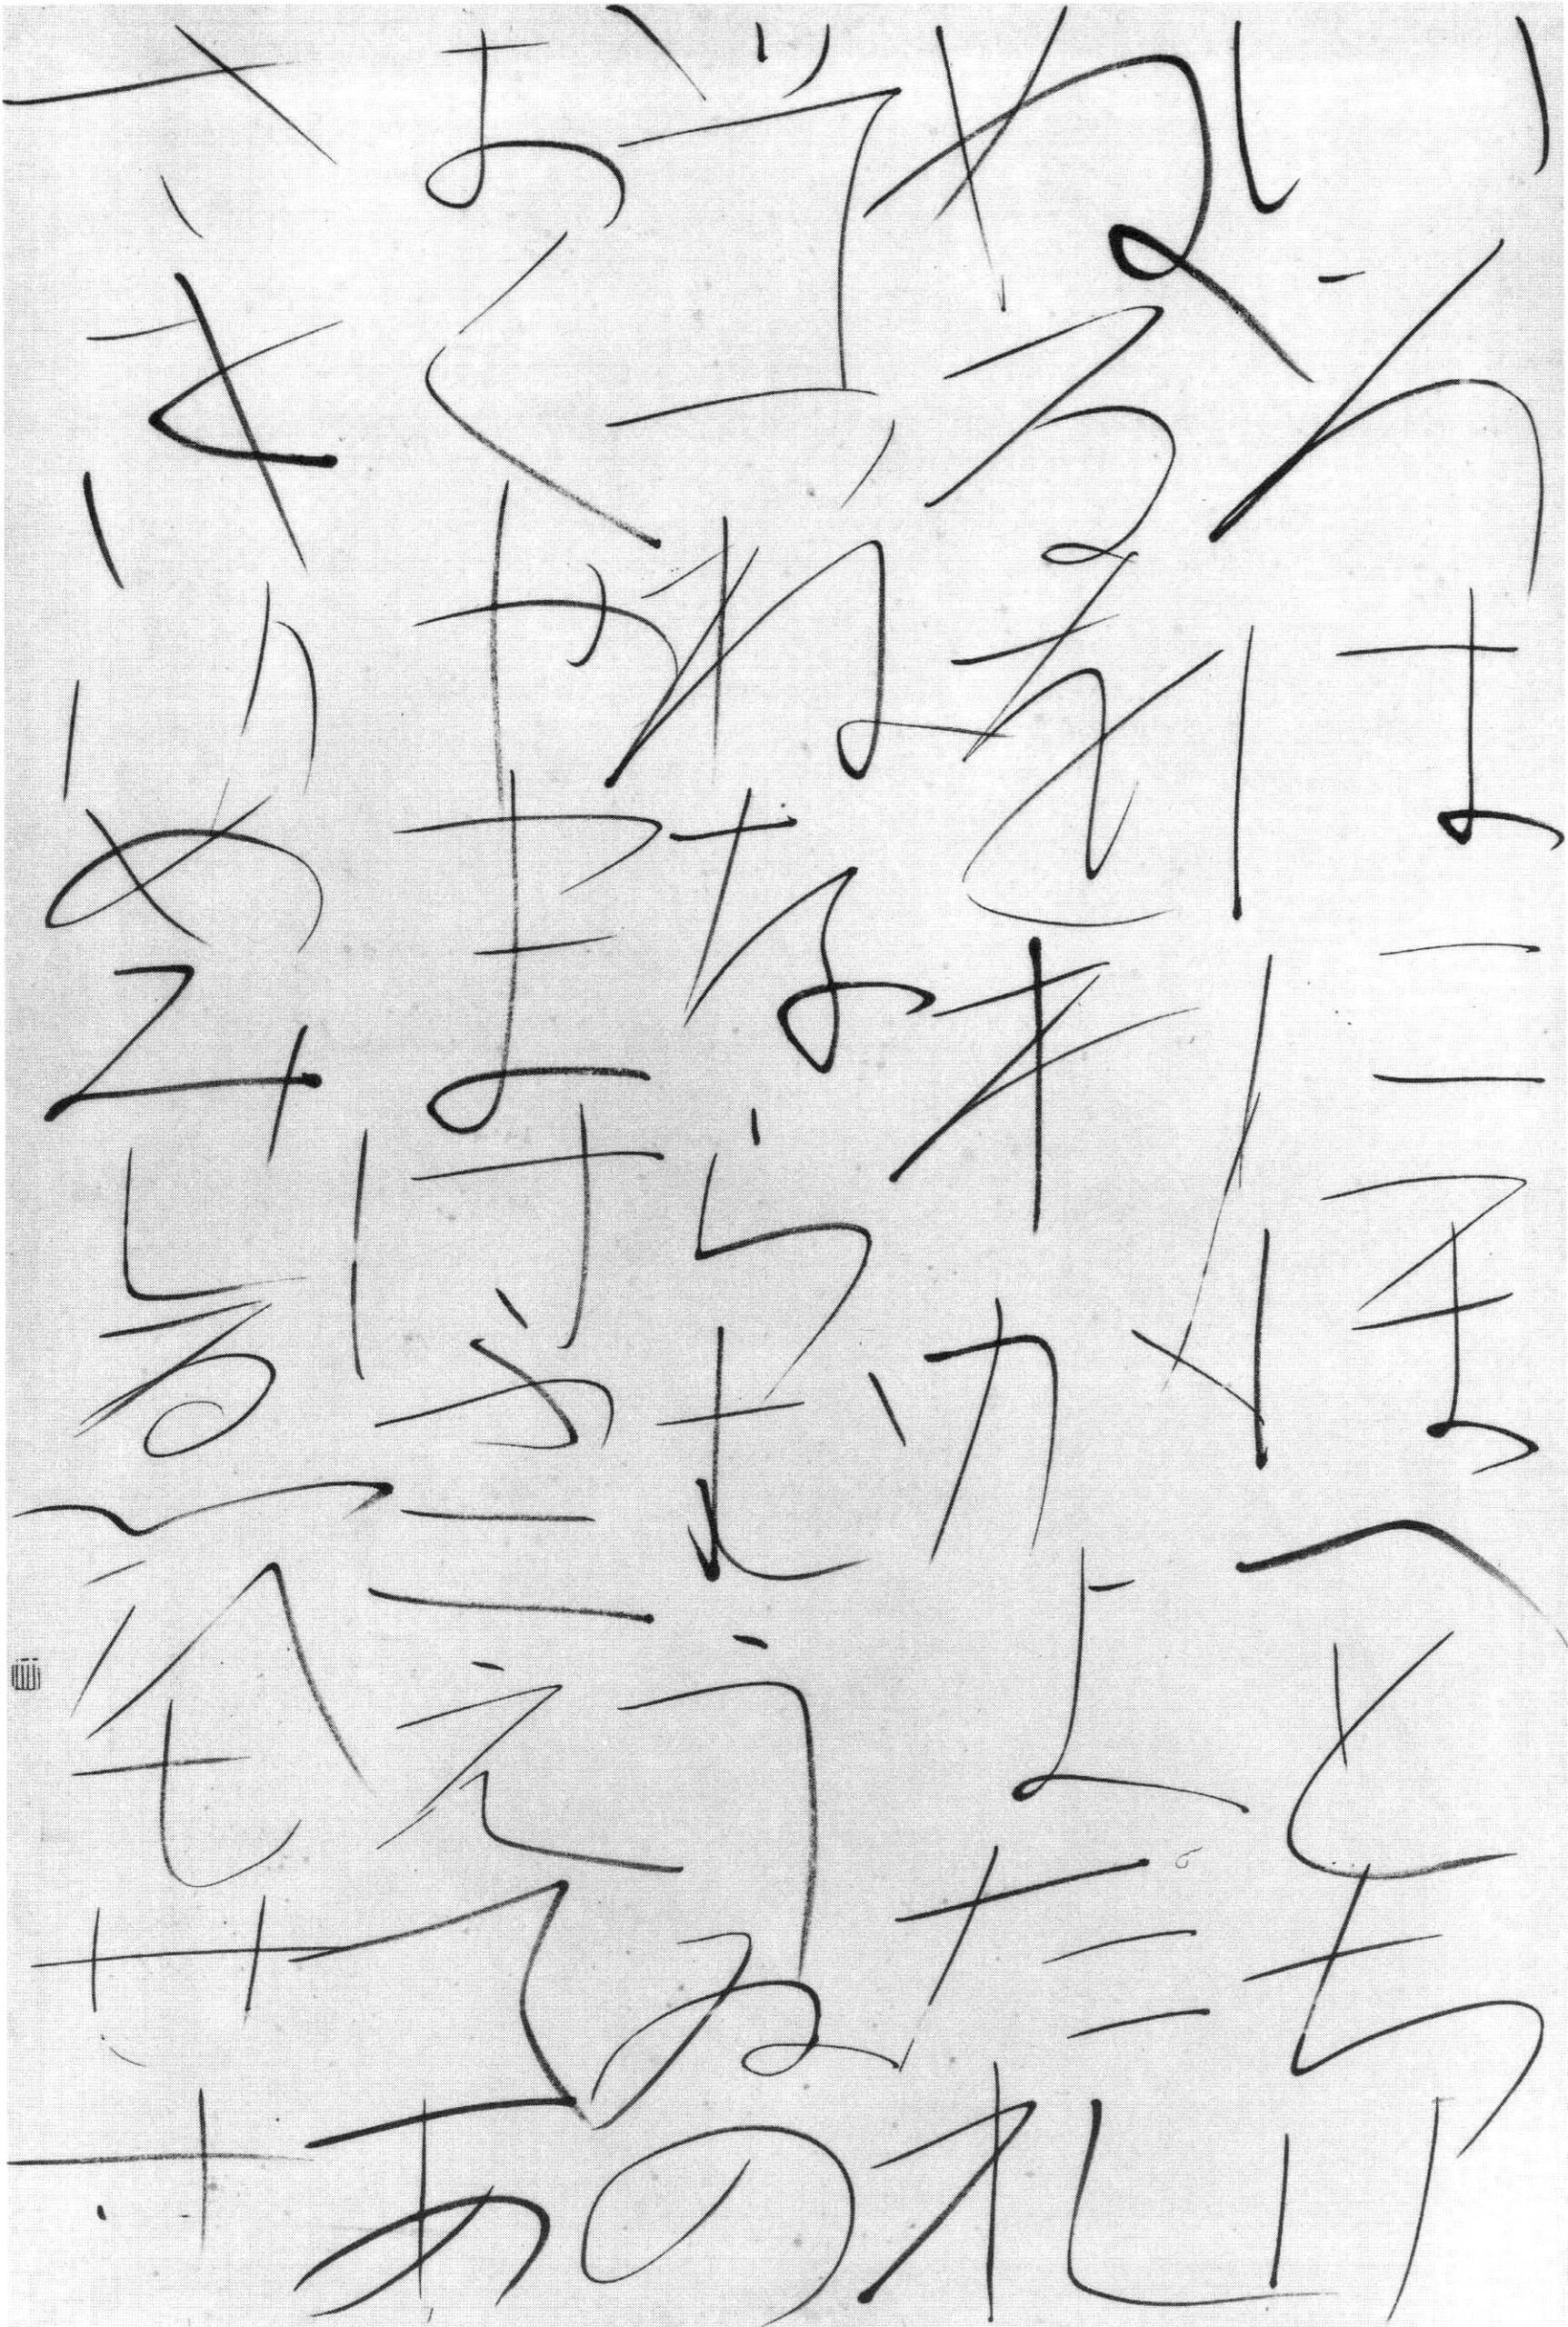 いろはにほへとちり
ぬるをわかよたれ
そつねならむうゐの
おくやまけふこえてあ
さきゆめみしゑひもせす